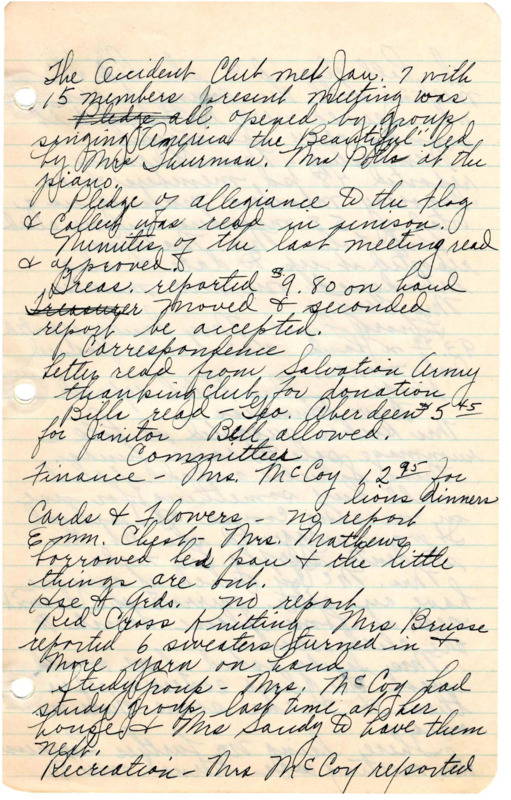 The Occident Club met Jan. 7 with
15 members present meeting was
Pledge all opened by group
singing "America the Beautiful" led
by Mrs Thurman. Mrs Potts at the
piano.
Pledge of allegiance to the flag
& Collect was read in unison.
Minutes of the last meeting read
& approved.
Treas. reported $9.80 on hand
Treasurer moved & seconded
report be accepted.
Correspondence
Letter read from Salvation Army
thanking club for donation
Bills read - Geo. Aberdeen $5 45
for janitor Bill allowed.
Committees
Finance - Mrs. McCoy 12 95 for
lions dinners
Cards & Flowers - no report
Comm. Chest - Mrs. Mathews
borrowed bed pan & the little
things are out.
Hse & Grds. no report
Red Cross Knitting - Mrs Brusse
reported 6 sweaters turned in &
more yarn on hand
Study Group - Mrs. McCoy had
study group last time at her
house & Mrs Sandy to have them
next.
Recreation - Mrs McCoy reported